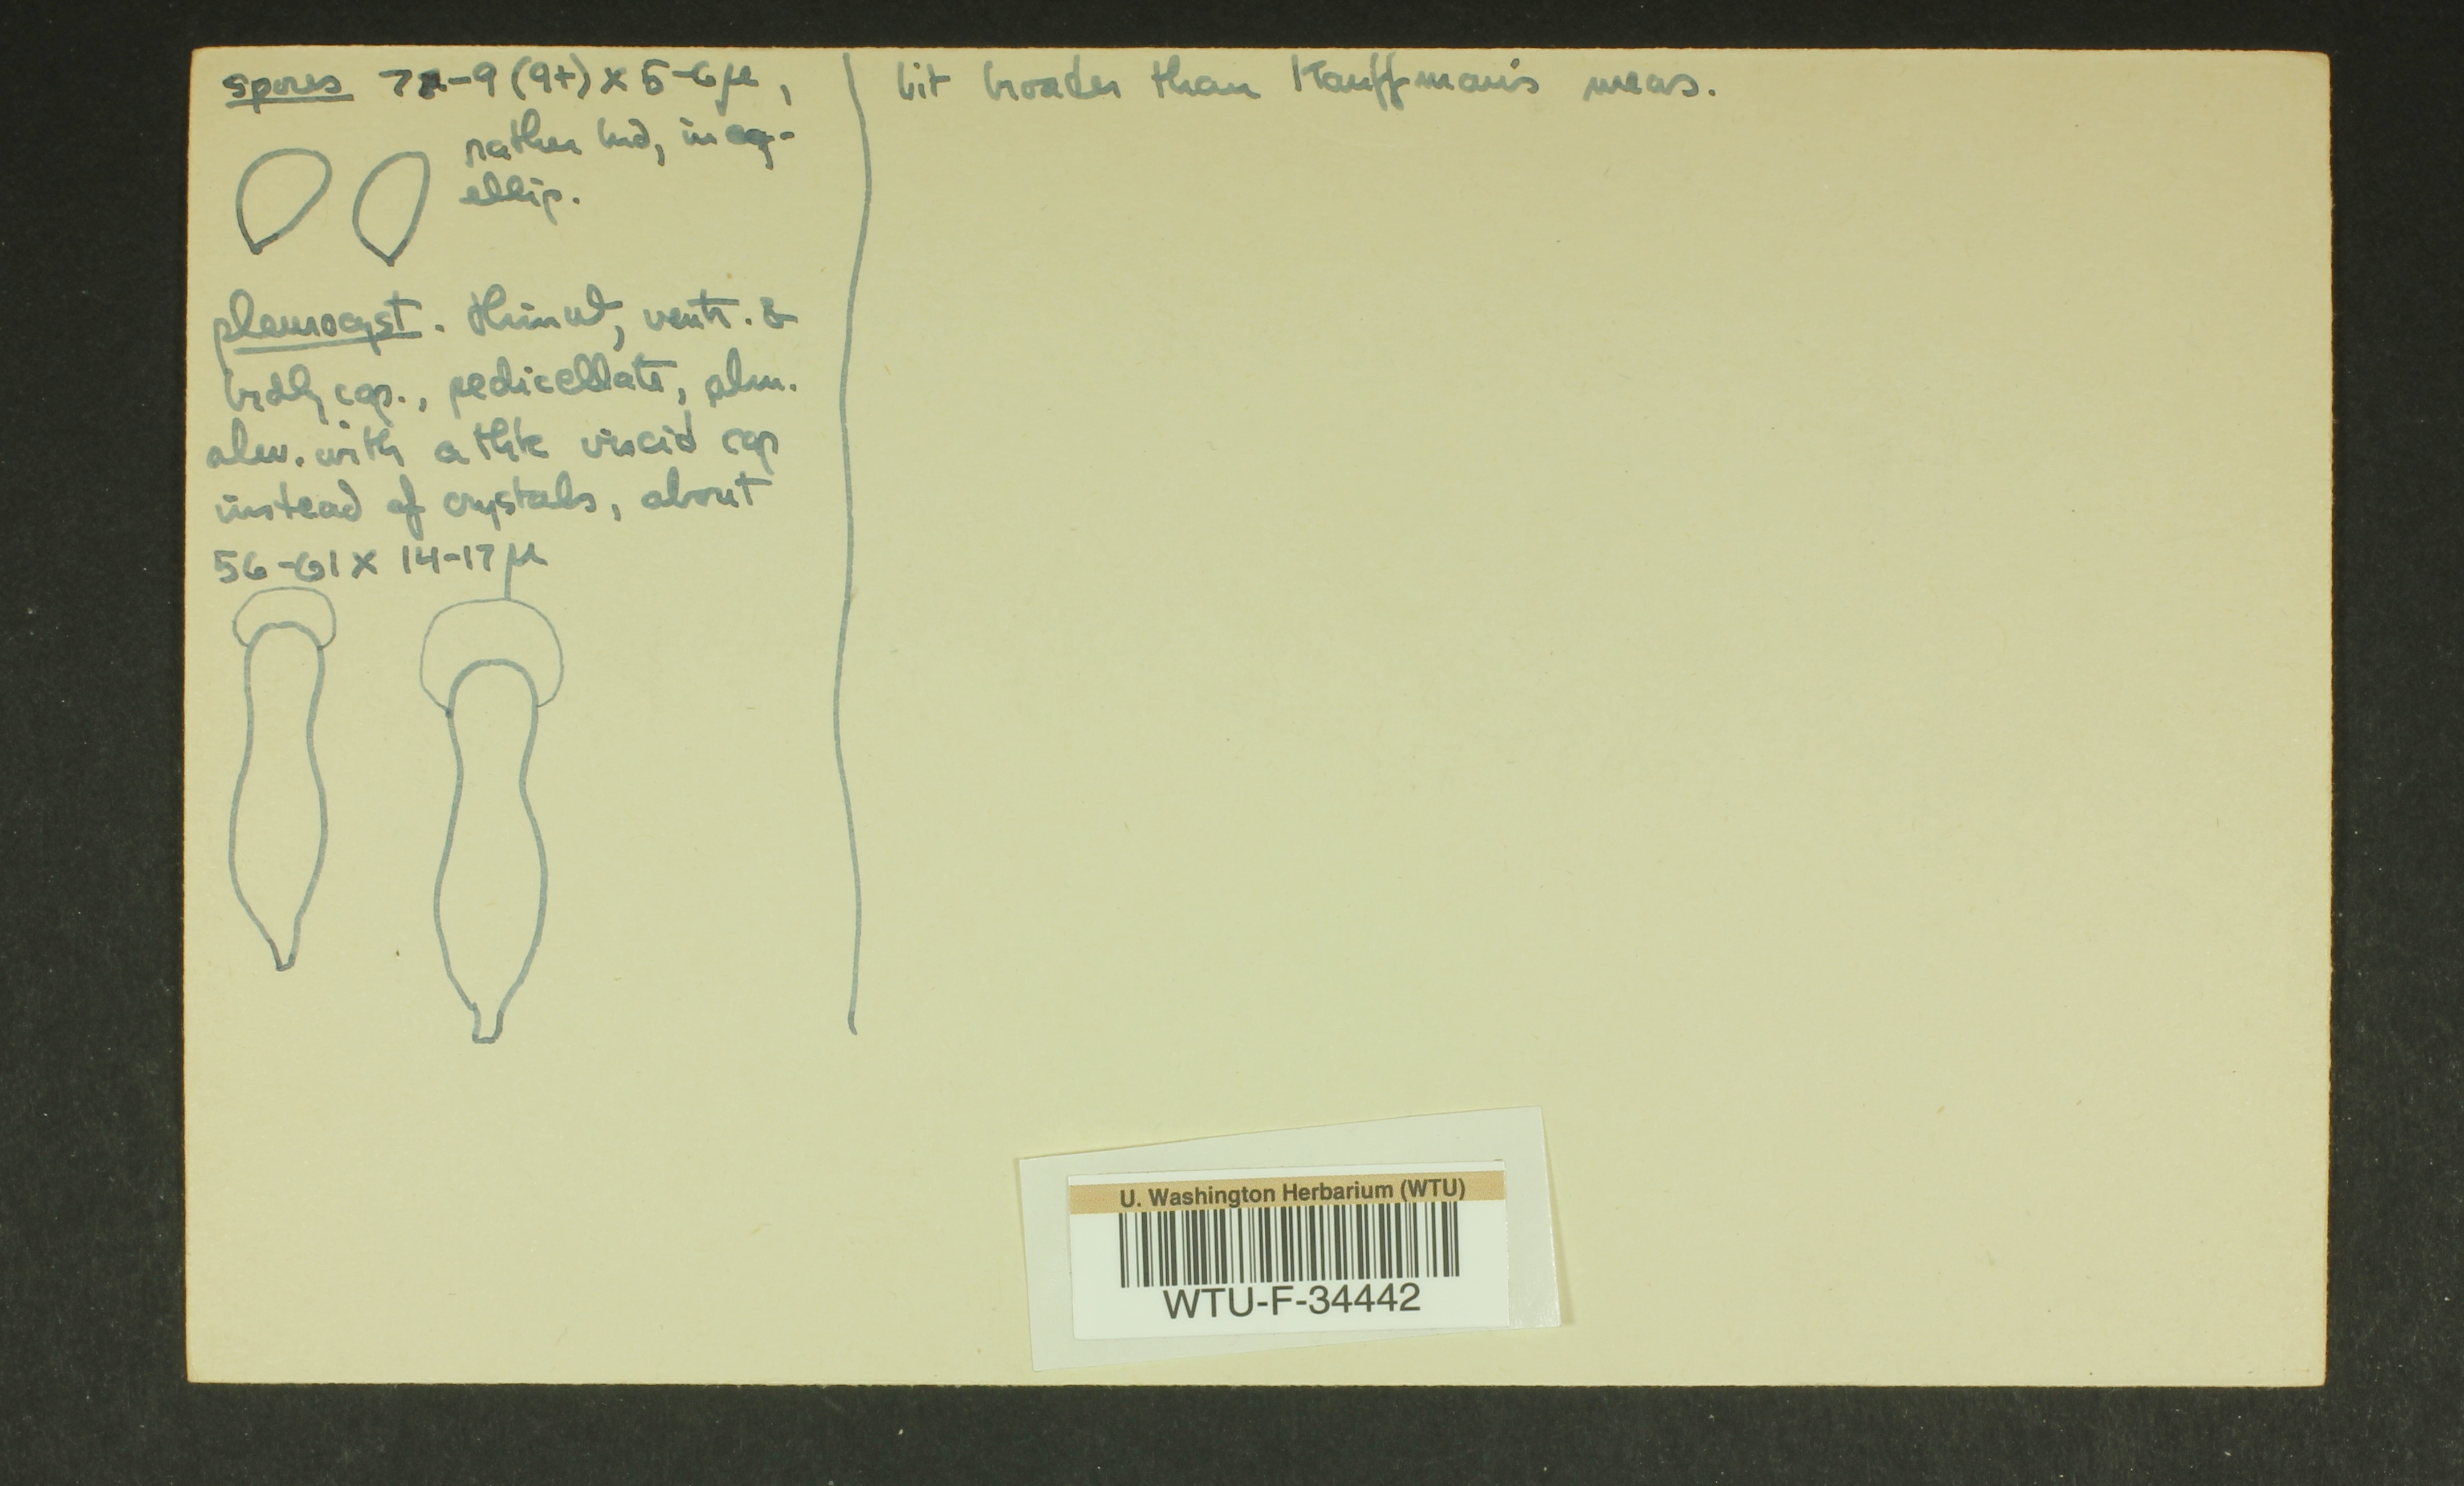 spores 7-9 (9+) x 5-6 µ,
rather brd, ineq-
ellip.
pleurocyst. thinwl, ventr. &
brdly cap., pedicellate, alm.
alw. with a thk viscid cap
instead of crystals, about
56-61 x 14-17 µ
bit broader than Kauffman's meas.
U. Washington Herbarium (WTU)
WTU-F-34442